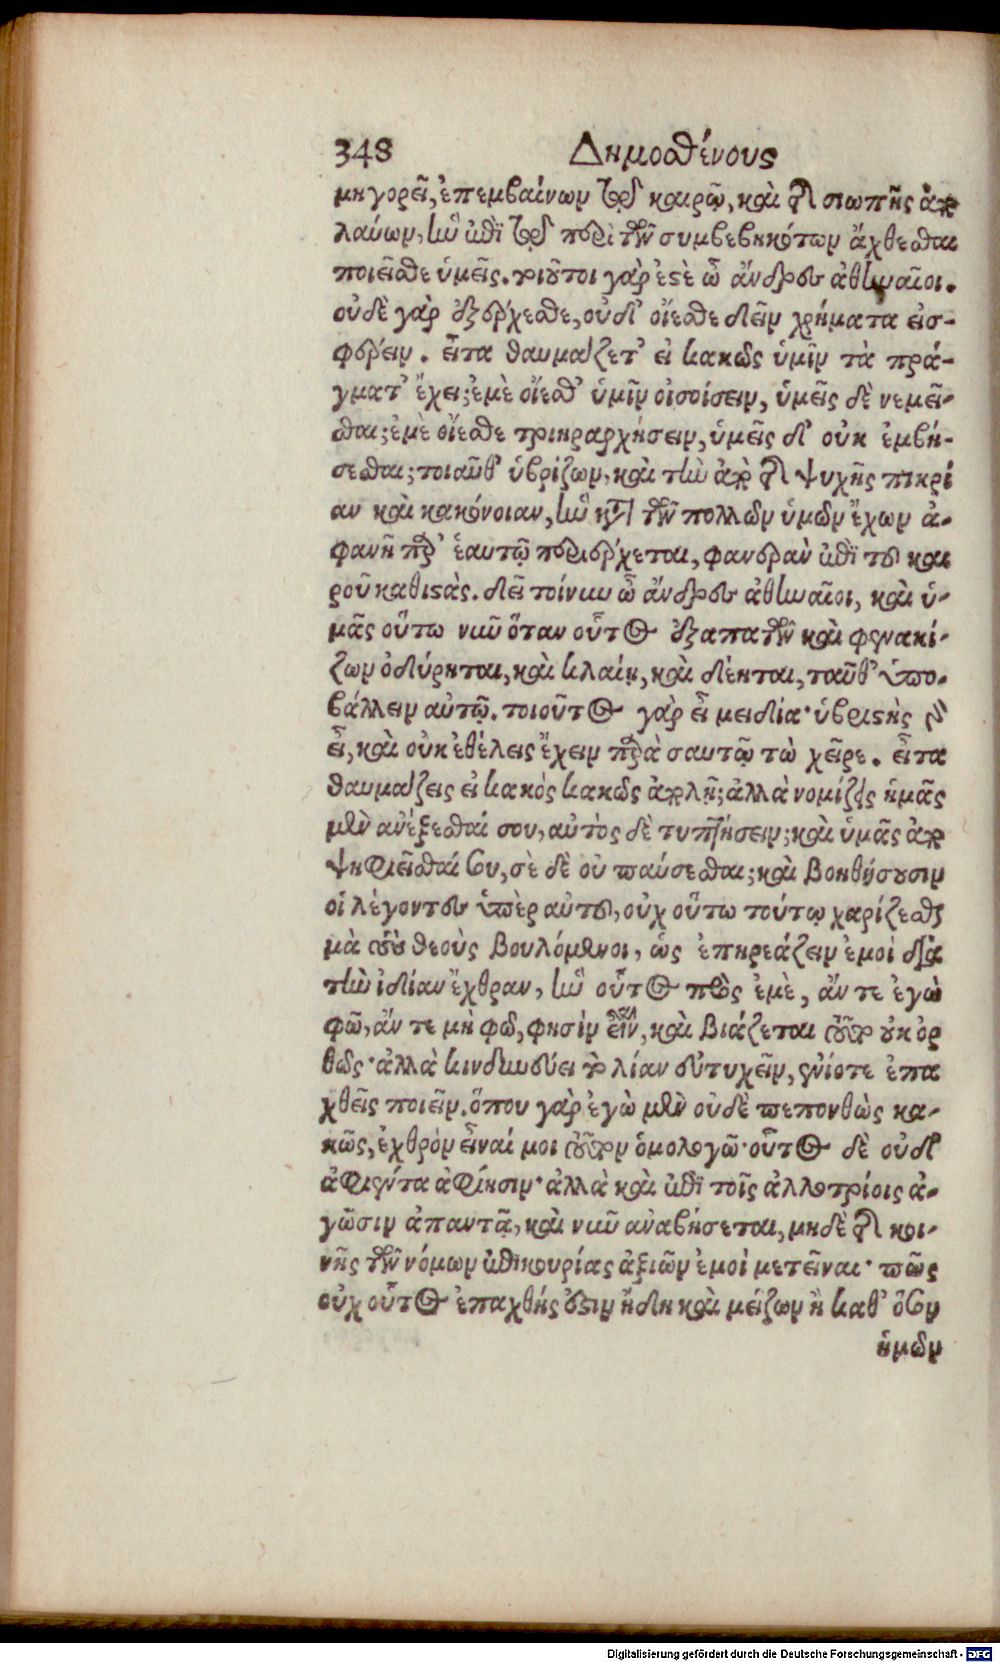 348 Δημοσθένους
μηγορεῖ, ἐπεμβαίνων τῷ καιρῷ, καὶ τῆς σιωπῆς ἀπο
λαύων, ἣν ἐπὶ τοῦ περὶ τῶν συμβεβηκότων ἄχθεσθαι
ποιεῖσθε ὑμεῖς. τοιοῦτοι γάρ ἐστε ὦ ἄνδρες ἀθηναῖοι.
οὐδὲ γὰρ ἐξέρχεσθε, οὐδ' οἴεσθε δεῖν χρήματα εἰσ-
φέρειν. εἶτα θαυμάζετ' εἰ κακῶς ὑμῖν τὰ πρά-
γματ' ἔχει; ἐμὲ οἴεσθ' ὑμῖν οἰσοίσειν, ὑμεῖς δὲ νεμεῖ-
σθαι; ἐμὲ οἴεσθε τριηραρχήσειν, ὑμεῖς δ' οὐκ ἐμβή-
σεσθαι; τοιαῦθ' ὑβρίζων, καὶ τὴν ἀπὸ τῆς ψυχῆς πικρί
αν καὶ κακόνοιαν, ἣν κατὰ τῶν πολλῶν ὑμῶν ἔχων ἀ-
φανῆ παρ' ἑαυτῷ περιέρχεται, φανερὰν ἐπὶ τοῦ και
ροῦ καθιστάς. δεῖ τοίνυν ὦ ἄνδρες ἀθηναῖοι, καὶ ὑ-
μᾶς οὕτω νῦν ὅταν οὗτος ἐξαπατῶν καὶ φενακί-
ζων ὀδύρηται, καὶ κλαίῃ, καὶ δέηται, ταῦθ' ὑπο-
βάλλειν αὐτῷ. τοιοῦτος γὰρ εἶ μειδία· ὑβριστὴς
εἶ, καὶ οὐκ ἐθέλεις ἔχειν παρὰ σαυτῷ τὼ χεῖρε. εἶτα
θαυμάζεις εἰ κακὸς κακῶς ἀπολῇ; ἀλλὰ νομίζεις ἡμᾶς
μὲν ἀνέξεσθαί σου, αὐτὸς δὲ τυπτήσειν; καὶ ὑμᾶς ἀπο
ψηφιεῖσθαί σου, σὲ δὲ οὐ παύσεσθαι; καὶ βοηθήσουσιν
οἱ λέγοντες ὑπὲρ αὐτοῦ, οὐχ οὕτω τούτῳ χαρίζεσθαι
μὰ τοὺς θεοὺς βουλόμενοι, ὡς ἐπηρεάζειν ἐμοὶ διὰ
τὴν ἰδίαν ἔχθραν, ἣν οὗτος πρὸς ἐμὲ, ἄν τε ἐγὼ
φῶ, ἄν τε μὴ φῶ, φησὶν εἶναι, καὶ βιάζεται οὐκ ὀρ
θῶς· ἀλλὰ κινδυνεύει τὸ λίαν εὐτυχεῖν, ἐνίοτε ἐπα
χθεῖς ποιεῖν. ὅπου γὰρ ἐγὼ μὲν οὐδὲ πεπονθὼς κα-
κῶς, ἐχθρόν εἶναί μοι τοῦτον ὁμολογῶ· οὗτος δὲ οὐδ'
ἀφιέντα ἀφίησιν· ἀλλὰ καὶ ἐπὶ τοῖς ἀλλοτρίοις ἀ-
γῶσιν ἀπαντᾷ, καὶ νῦν ἀναβήσεται, μηδὲ τῆς κοι-
νῆς τῶν νόμων ἐπικουρίας ἀξιῶν ἐμοὶ μετεῖναι· πῶς
οὐχ οὗτος ἐπαχθής ἐστιν ἤδη καὶ μείζων ἢ καθ' ὅσον
ἡμῶν
Digitalisierung gefördert durch die Deutsche Forschungsgemeinschaft - DFG